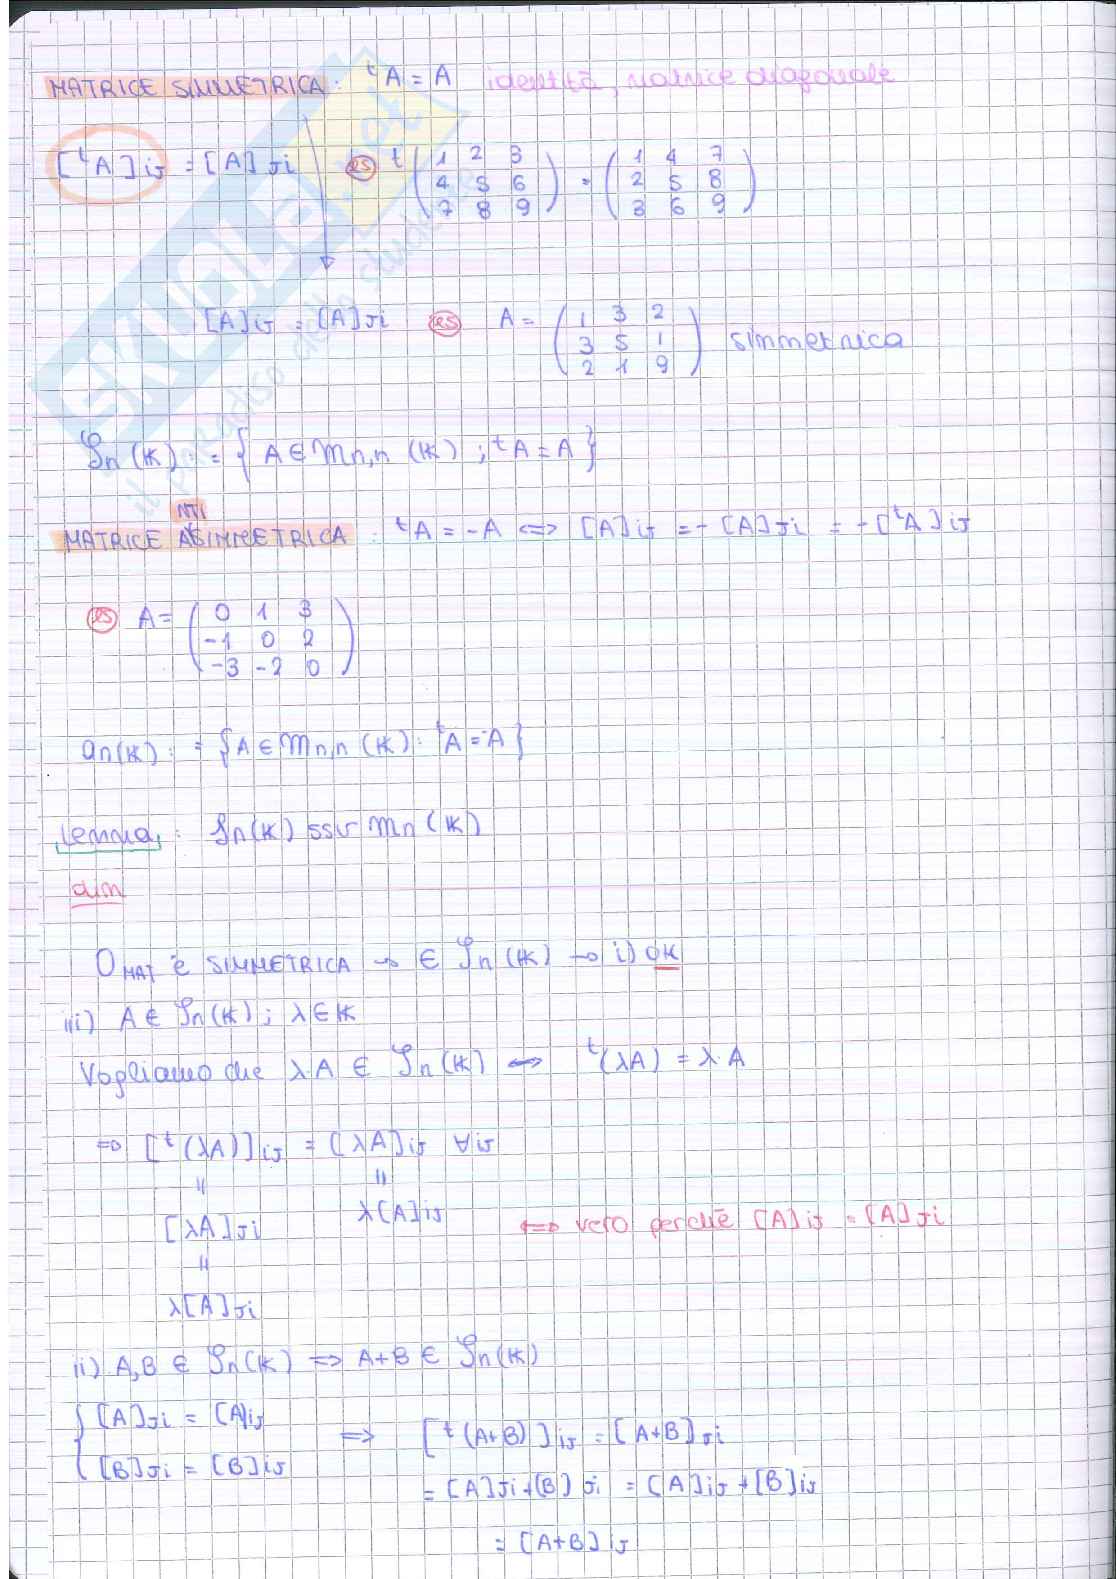 MATRICE SIMMETRICA: ᵗA = A identità, matrice diagonale
[ᵗA]ij = [A]ji es t(1 2 3 = (1 4 7
4 5 6 2 5 8
7 8 9) 3 6 9)
[A]ij = [A]ji es A = (1 3 2
3 5 1 simmetrica
2 1 9)
𝒮n(𝕂) := { A ∈ Mn,n (𝕂) ; ᵗA = A }
NTI
MATRICE ASIMMETRICA : ᵗA = -A ⇔ [A]ij = -[A]ji = -[ᵗA]ij
es A = (0 1 3
-1 0 2
-3 -2 0)
an(𝕂) := {A ∈ Mn,n (𝕂) : ᵗA = -A}
Lemma: 𝒮n(𝕂) ssv Mn (𝕂)
dim
OMAT è SIMMETRICA → ∈ 𝒮n (𝕂) → i) OK
iii) A ∈ 𝒮n(𝕂) ; λ ∈ 𝕂
Vogliamo che λA ∈ 𝒮n(𝕂) ⇔ ᵗ(λA) = λ·A
⇔ [ᵗ(λA)]ij = [λA]ij ∀ij
= =
[λA]ji λ[A]ij ⇔ vero perchè [A]ij = [A]ji
=
λ[A]ji
ii) A,B ∈ 𝒮n(𝕂) ⇒ A+B ∈ 𝒮n(𝕂)
{ [A]ji = [A]ij
[B]ji = [B]ij ⇒ [ᵗ(A+B)]ij = [A+B]ji
= [A]ji + [B]ji = [A]ij + [B]ij
= [A+B]ij
SKUOLA.net
il paradiso dello studente